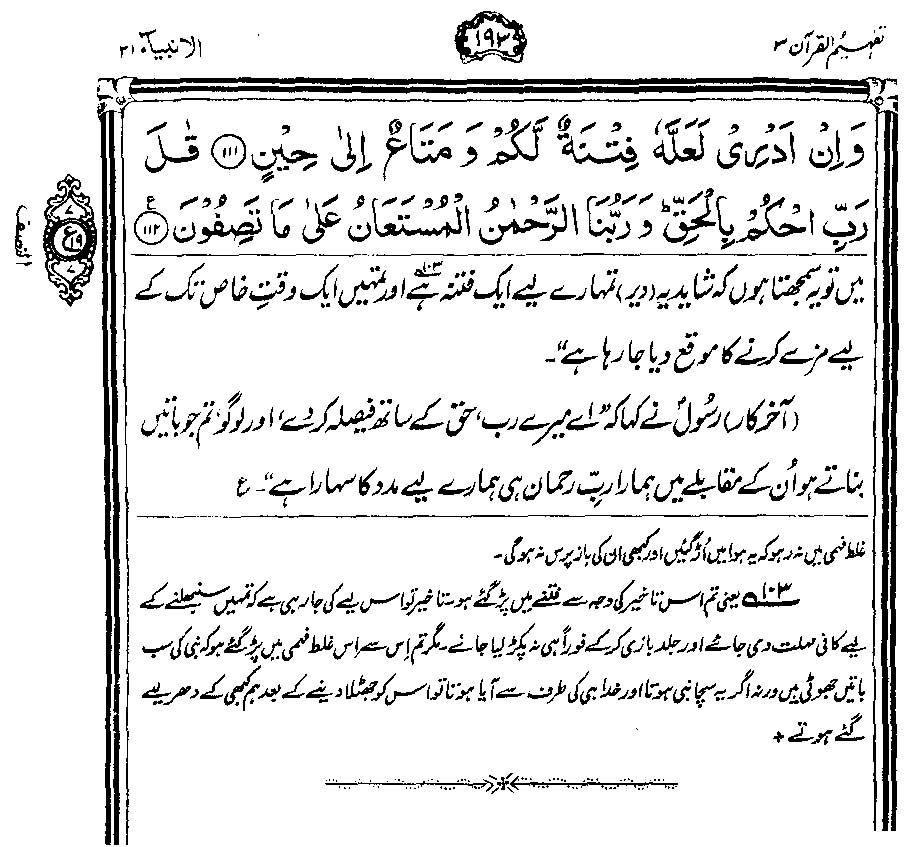 تفہیم القرآن ۳
۱۹۲
الانبیاء ۲۱
وَاِنْ اَدْرِیْ لَعَلَّهٗ فِتْنَةٌ لَّكُمْ وَ مَتَاعٌ اِلٰى حِیْنٍ ﴿۱۱۱﴾ قٰلَ
رَبِّ احْكُمْ بِالْحَقِّ ؕ وَ رَبُّنَا الرَّحْمٰنُ الْمُسْتَعَانُ عَلٰى مَا تَصِفُوْنَ ﴿۱۱۲﴾ ع
ع
۷
۱۹
۷
النصف
میں تو یہ سمجھتا ہوں کہ شاید یہ (دیر) تمہارے لیے ایک فتنہ ہے۱۰۳ اور تمہیں ایک وقتِ خاص تک کے
لیے مزے کرنے کا موقع دیا جا رہا ہے“۔
(آخرکار) رسُولؐ نے کہا کہ ”اے میرے رب، حق کے ساتھ فیصلہ کر دے، اور لوگو، تم جو باتیں
بناتے ہو اُن کے مقابلے میں ہمارا ربِّ رحمان ہی ہمارے لیے مدد کا سہارا ہے“۔ ع
غلط فہمی میں نہ رہو کہ یہ ہوا میں اُڑ گئیں اور کبھی ان کی باز پرس نہ ہو گی۔
۱۰۳ یعنی تم اس تاخیر کی وجہ سے فتنے میں پڑ گئے ہو۔ تاخیر تو اس لیے کی جا رہی ہے کہ تمہیں سنبھلنے کے
لیے کافی مہلت دی جائے اور جلد بازی کر کے فوراً ہی نہ پکڑ لیا جائے۔ مگر تم اِس سے اس غلط فہمی میں پڑ گئے ہو کہ نبی کی سب
باتیں جھوٹی ہیں ورنہ اگر یہ سچا نبی ہوتا اور خدا ہی کی طرف سے آیا ہوتا تو اس کو جھٹلا دینے کے بعد ہم کبھی کے دھر لیے
گئے ہوتے ۔